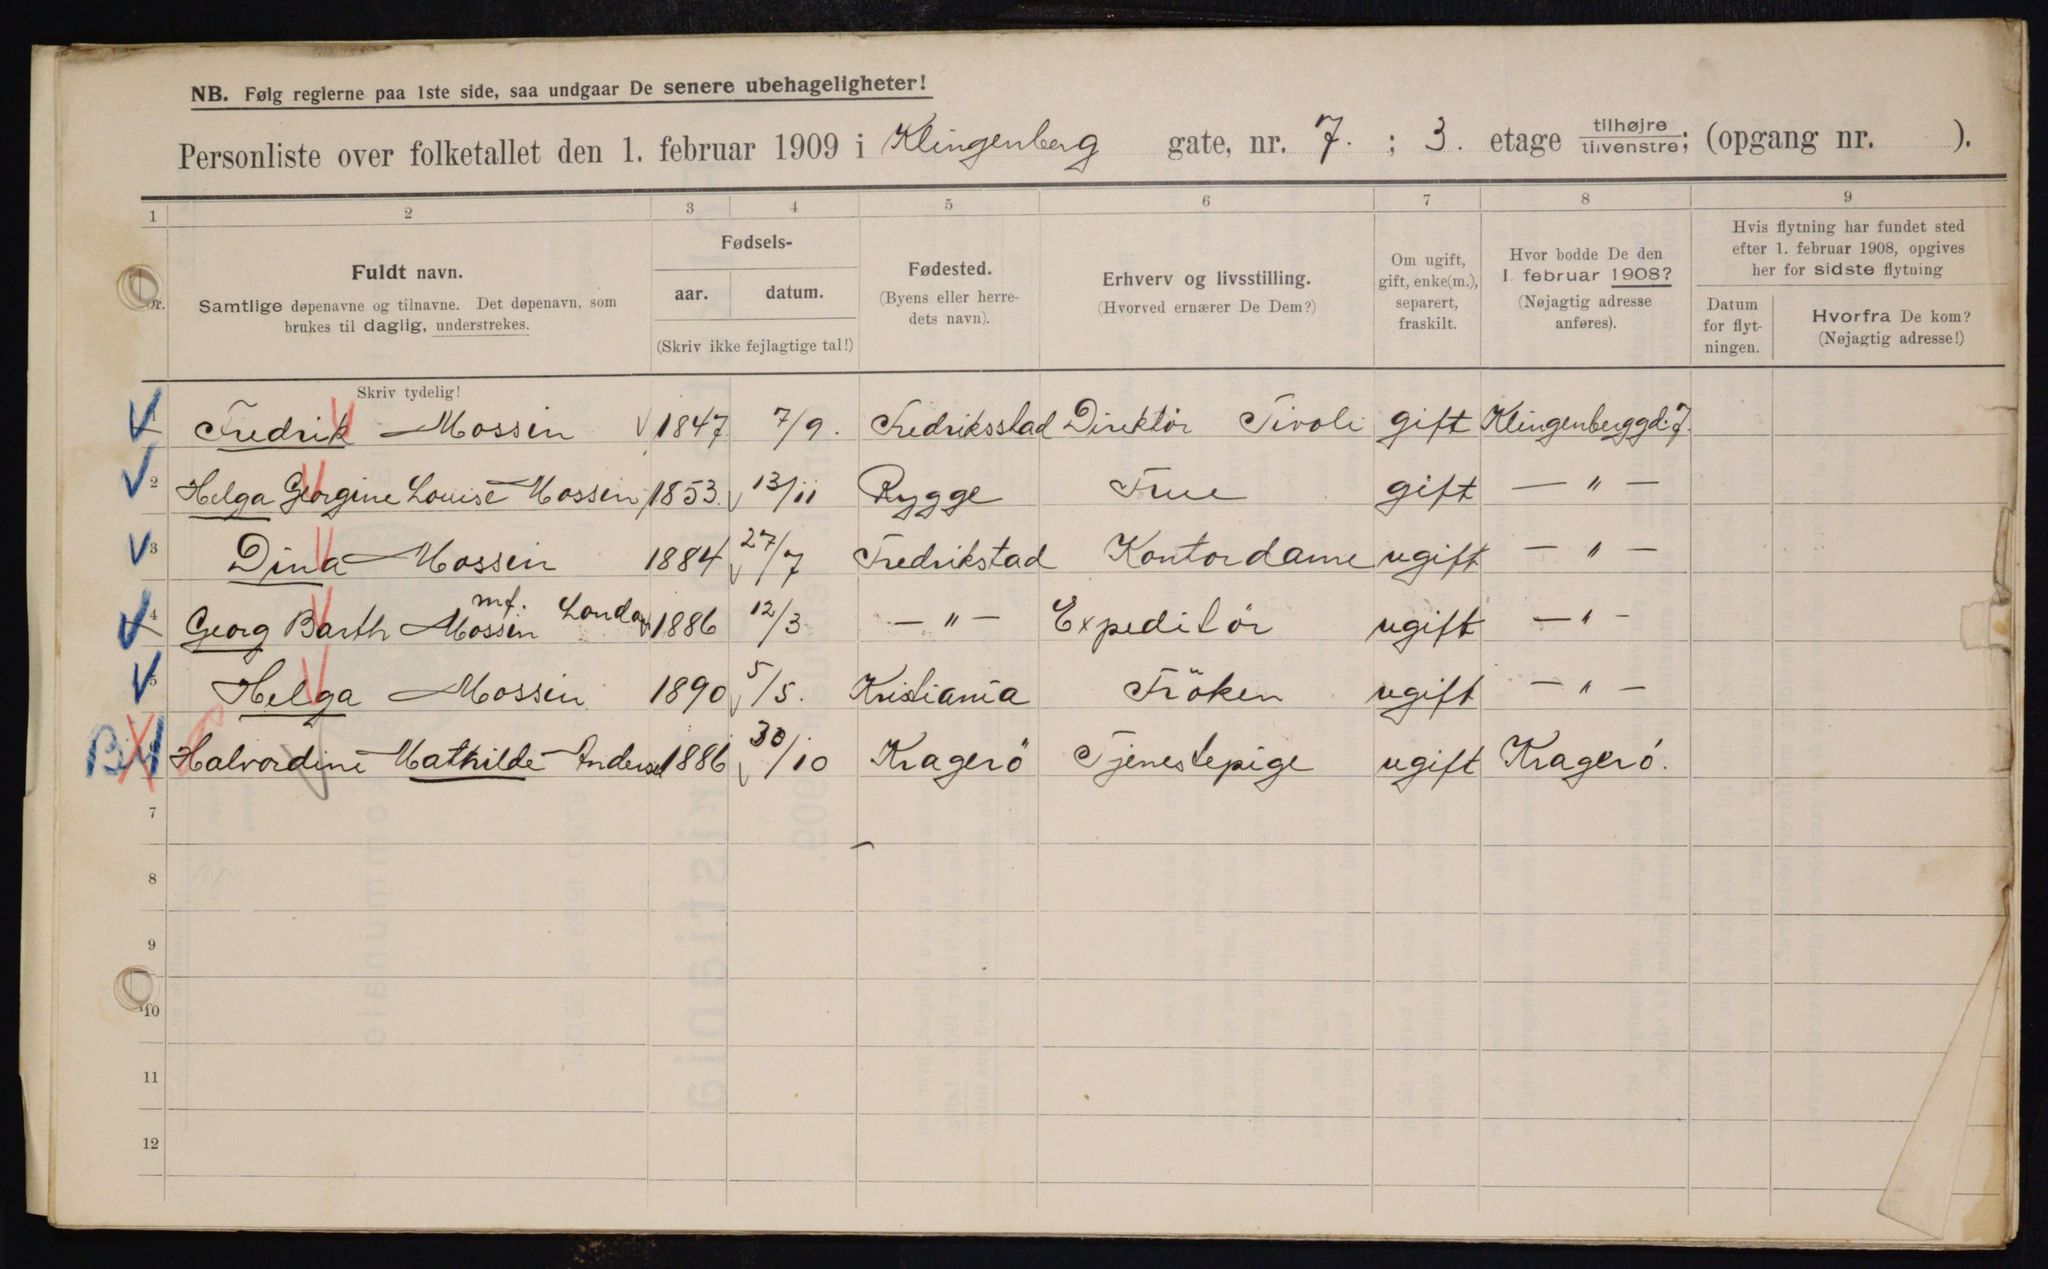 NB. Følg reglerne paa 1ste side, saa undgaar De senere ubehageligheter!
Personliste over folketallet den 1. februar 1909 i Klingenberg gate, nr. 7. ; 3. etage tilhøjre tilvenstre; (opgang nr. ).
1 2 3 4 5 6 7 8 9
Nr.
Fuldt navn.
Samtlige døpenavne og tilnavne. Det døpenavn, som
brukes til daglig, understrekes.
Fødsels-
aar. datum.
(Skriv ikke fejlagtige tal!)
Fødested.
(Byens eller herre-
dets navn).
Erhverv og livsstilling.
(Hvorved ernærer De Dem?)
Om ugift,
gift, enke(m.),
separert,
fraskilt.
Hvor bodde De den
1. februar 1908?
(Nøjagtig adresse
anføres).
Hvis flytning har fundet sted
efter 1. februar 1908, opgives
her for sidste flytning
Datum
for flyt-
ningen.
Hvorfra De kom?
(Nøjagtig adresse!)
Skriv tydelig!
1 Fredrik Mossin 1847 7/9. Fredriksstad Direktör Tivoli gift Klingenberggd. 7.
2 Helga Georgine Louise Mossin 1853. 13/11 Rygge Frue gift — " —
3 Dina Mossin 1884 27/7 Fredrikstad Kontordame ugift — " —
mf. London
4 Georg Barth Mossin 1886 12/3 — " — Expeditör ugift — " —
5 Helga Mossin 1890 5/5. Kristiania Fröken ugift — " —
Halvordine Mathilde Andersen 1886 30/10 Kragerö Tjenestepige ugift Kragerö.
7
8
9
10
11
12